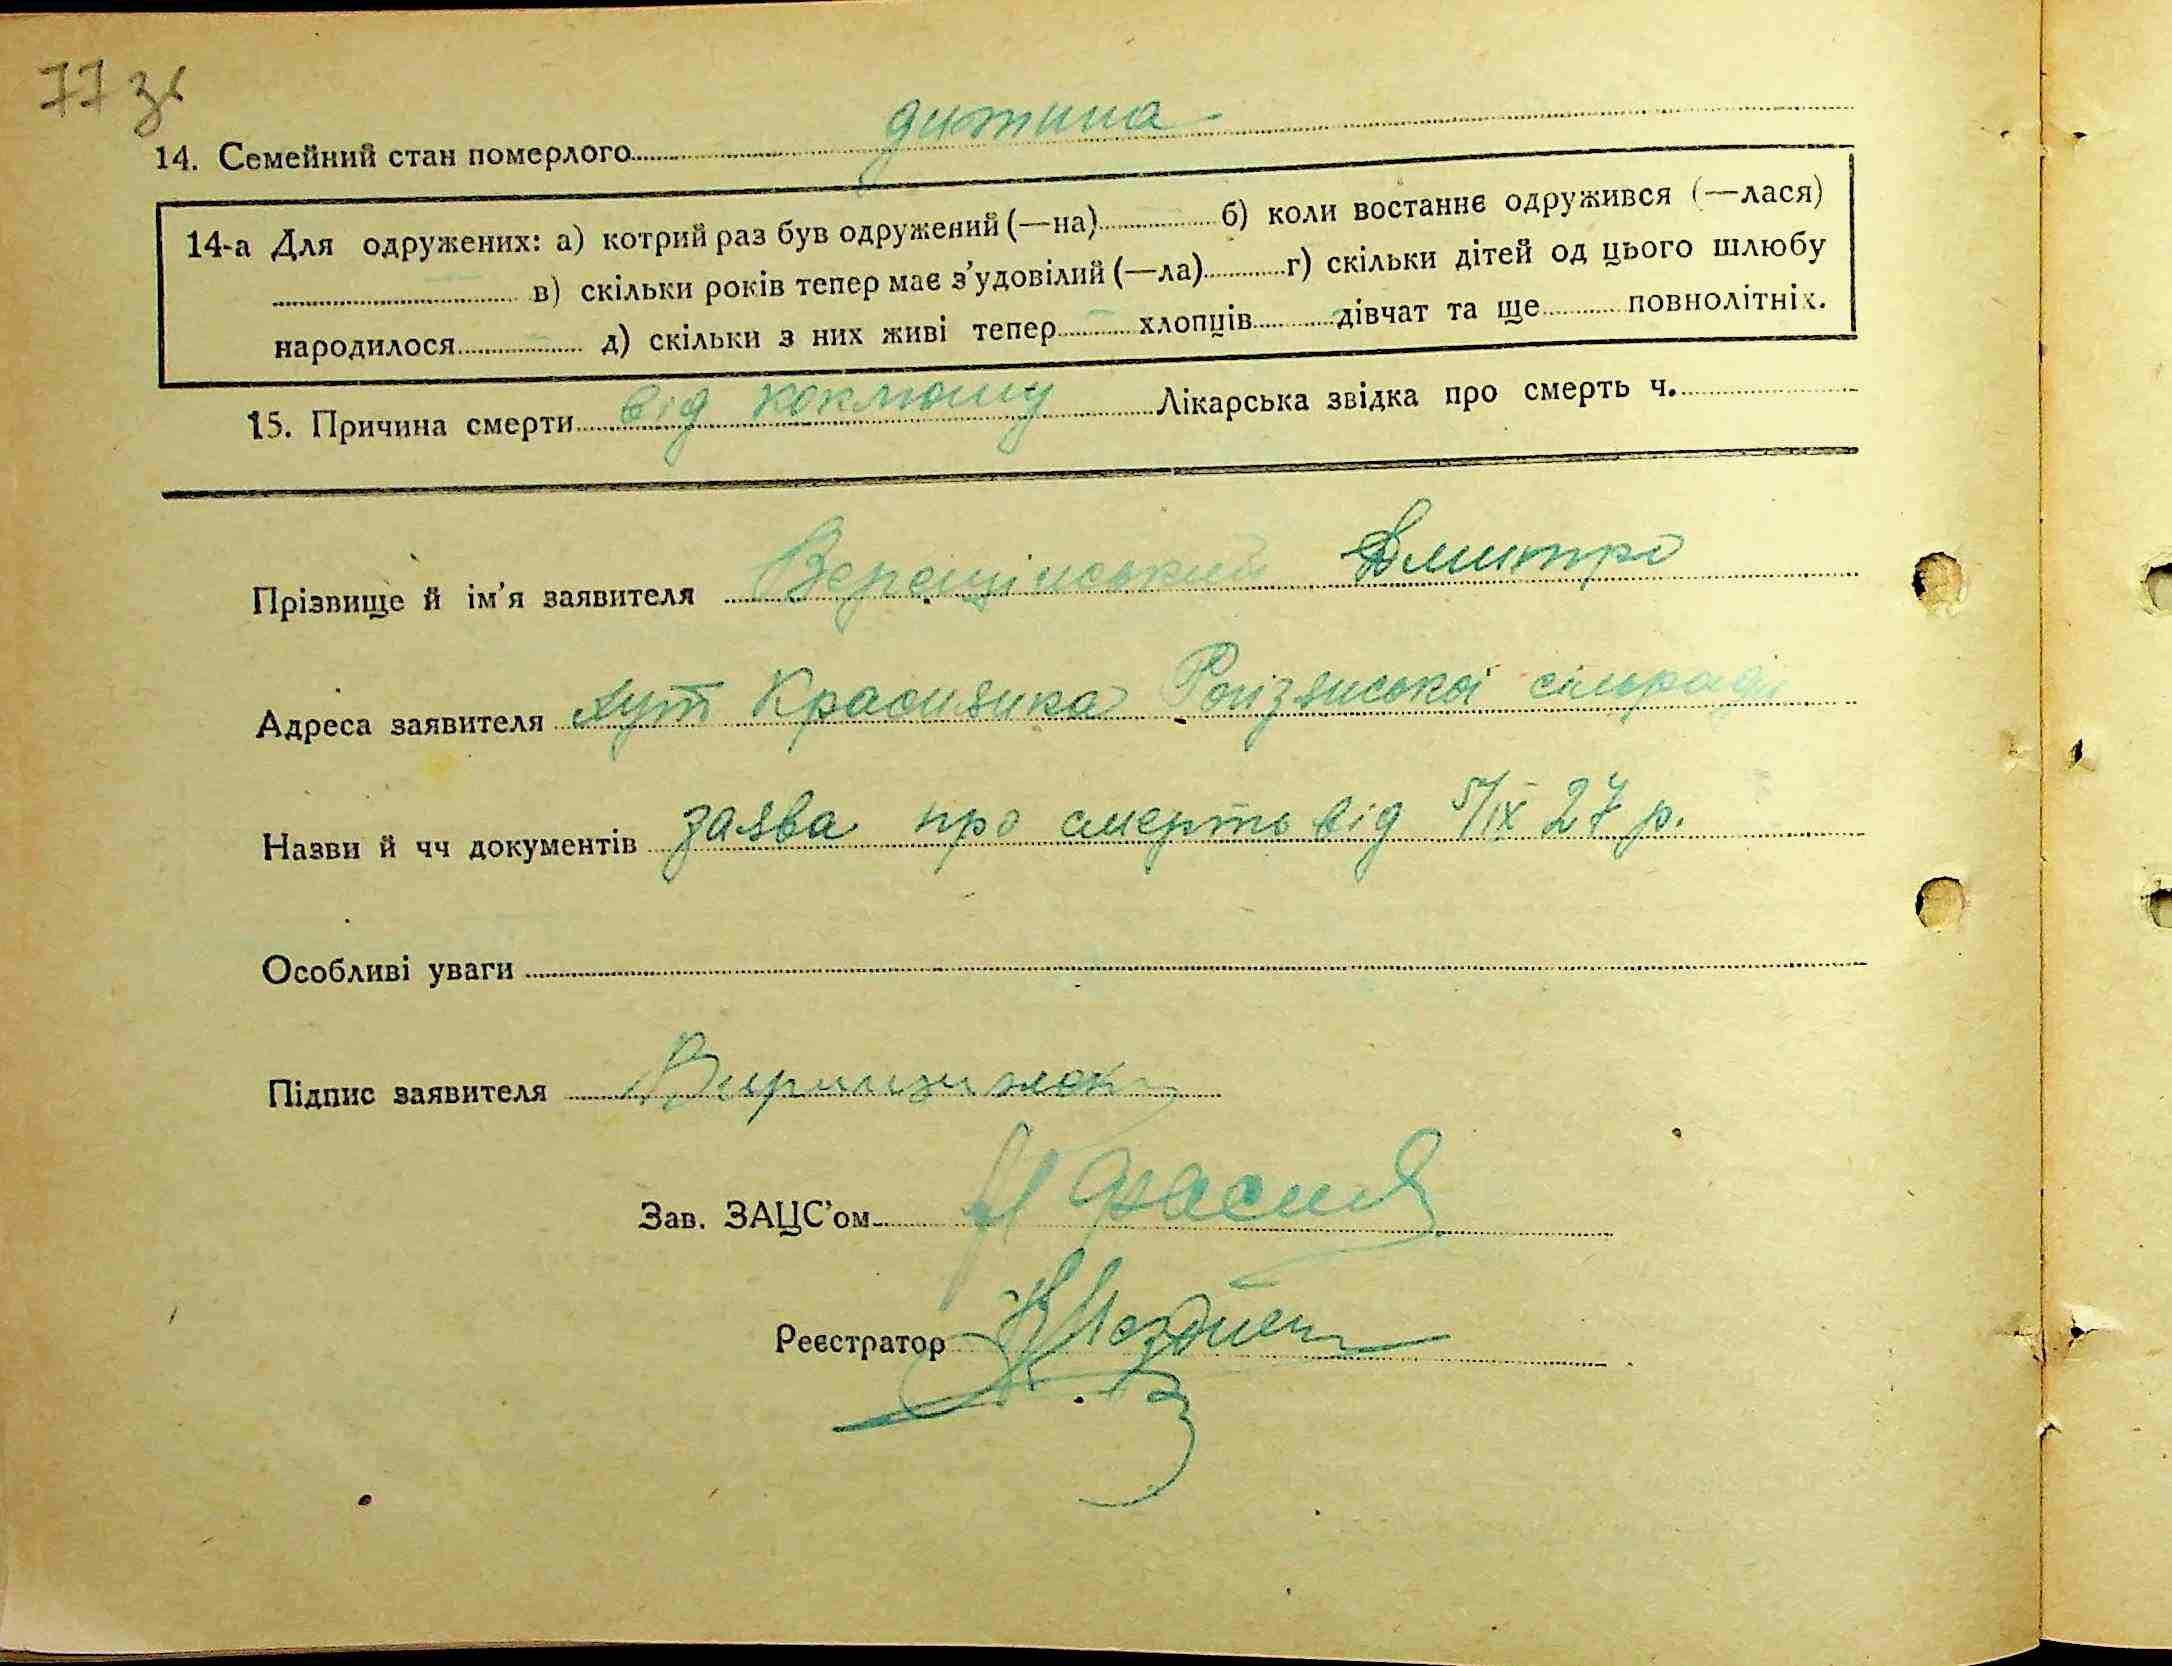 77 зв
14. Семейний стан померлого дитина
14-а Для одружених: а) котрий раз був одружений (—на) б) коли востаннє одружився (—лася)
в) скільки років тепер має з'удовілий (—ла) г) скільки дітей од цього шлюбу
народилося д) скільки з них живі тепер хлопців дівчат та ще повнолітніх.
15. Причина смерти від коклюшу Лікарська звідка про смерть ч.
Прізвище й ім'я заявителя Верещінський Дмитро
Адреса заявителя хут Сільради
Назви й чч документів заява про смерть від 5/IX 27 р.
Особливі уваги
Підпис заявителя
Зав. ЗАЦС'ом
Реєстратор